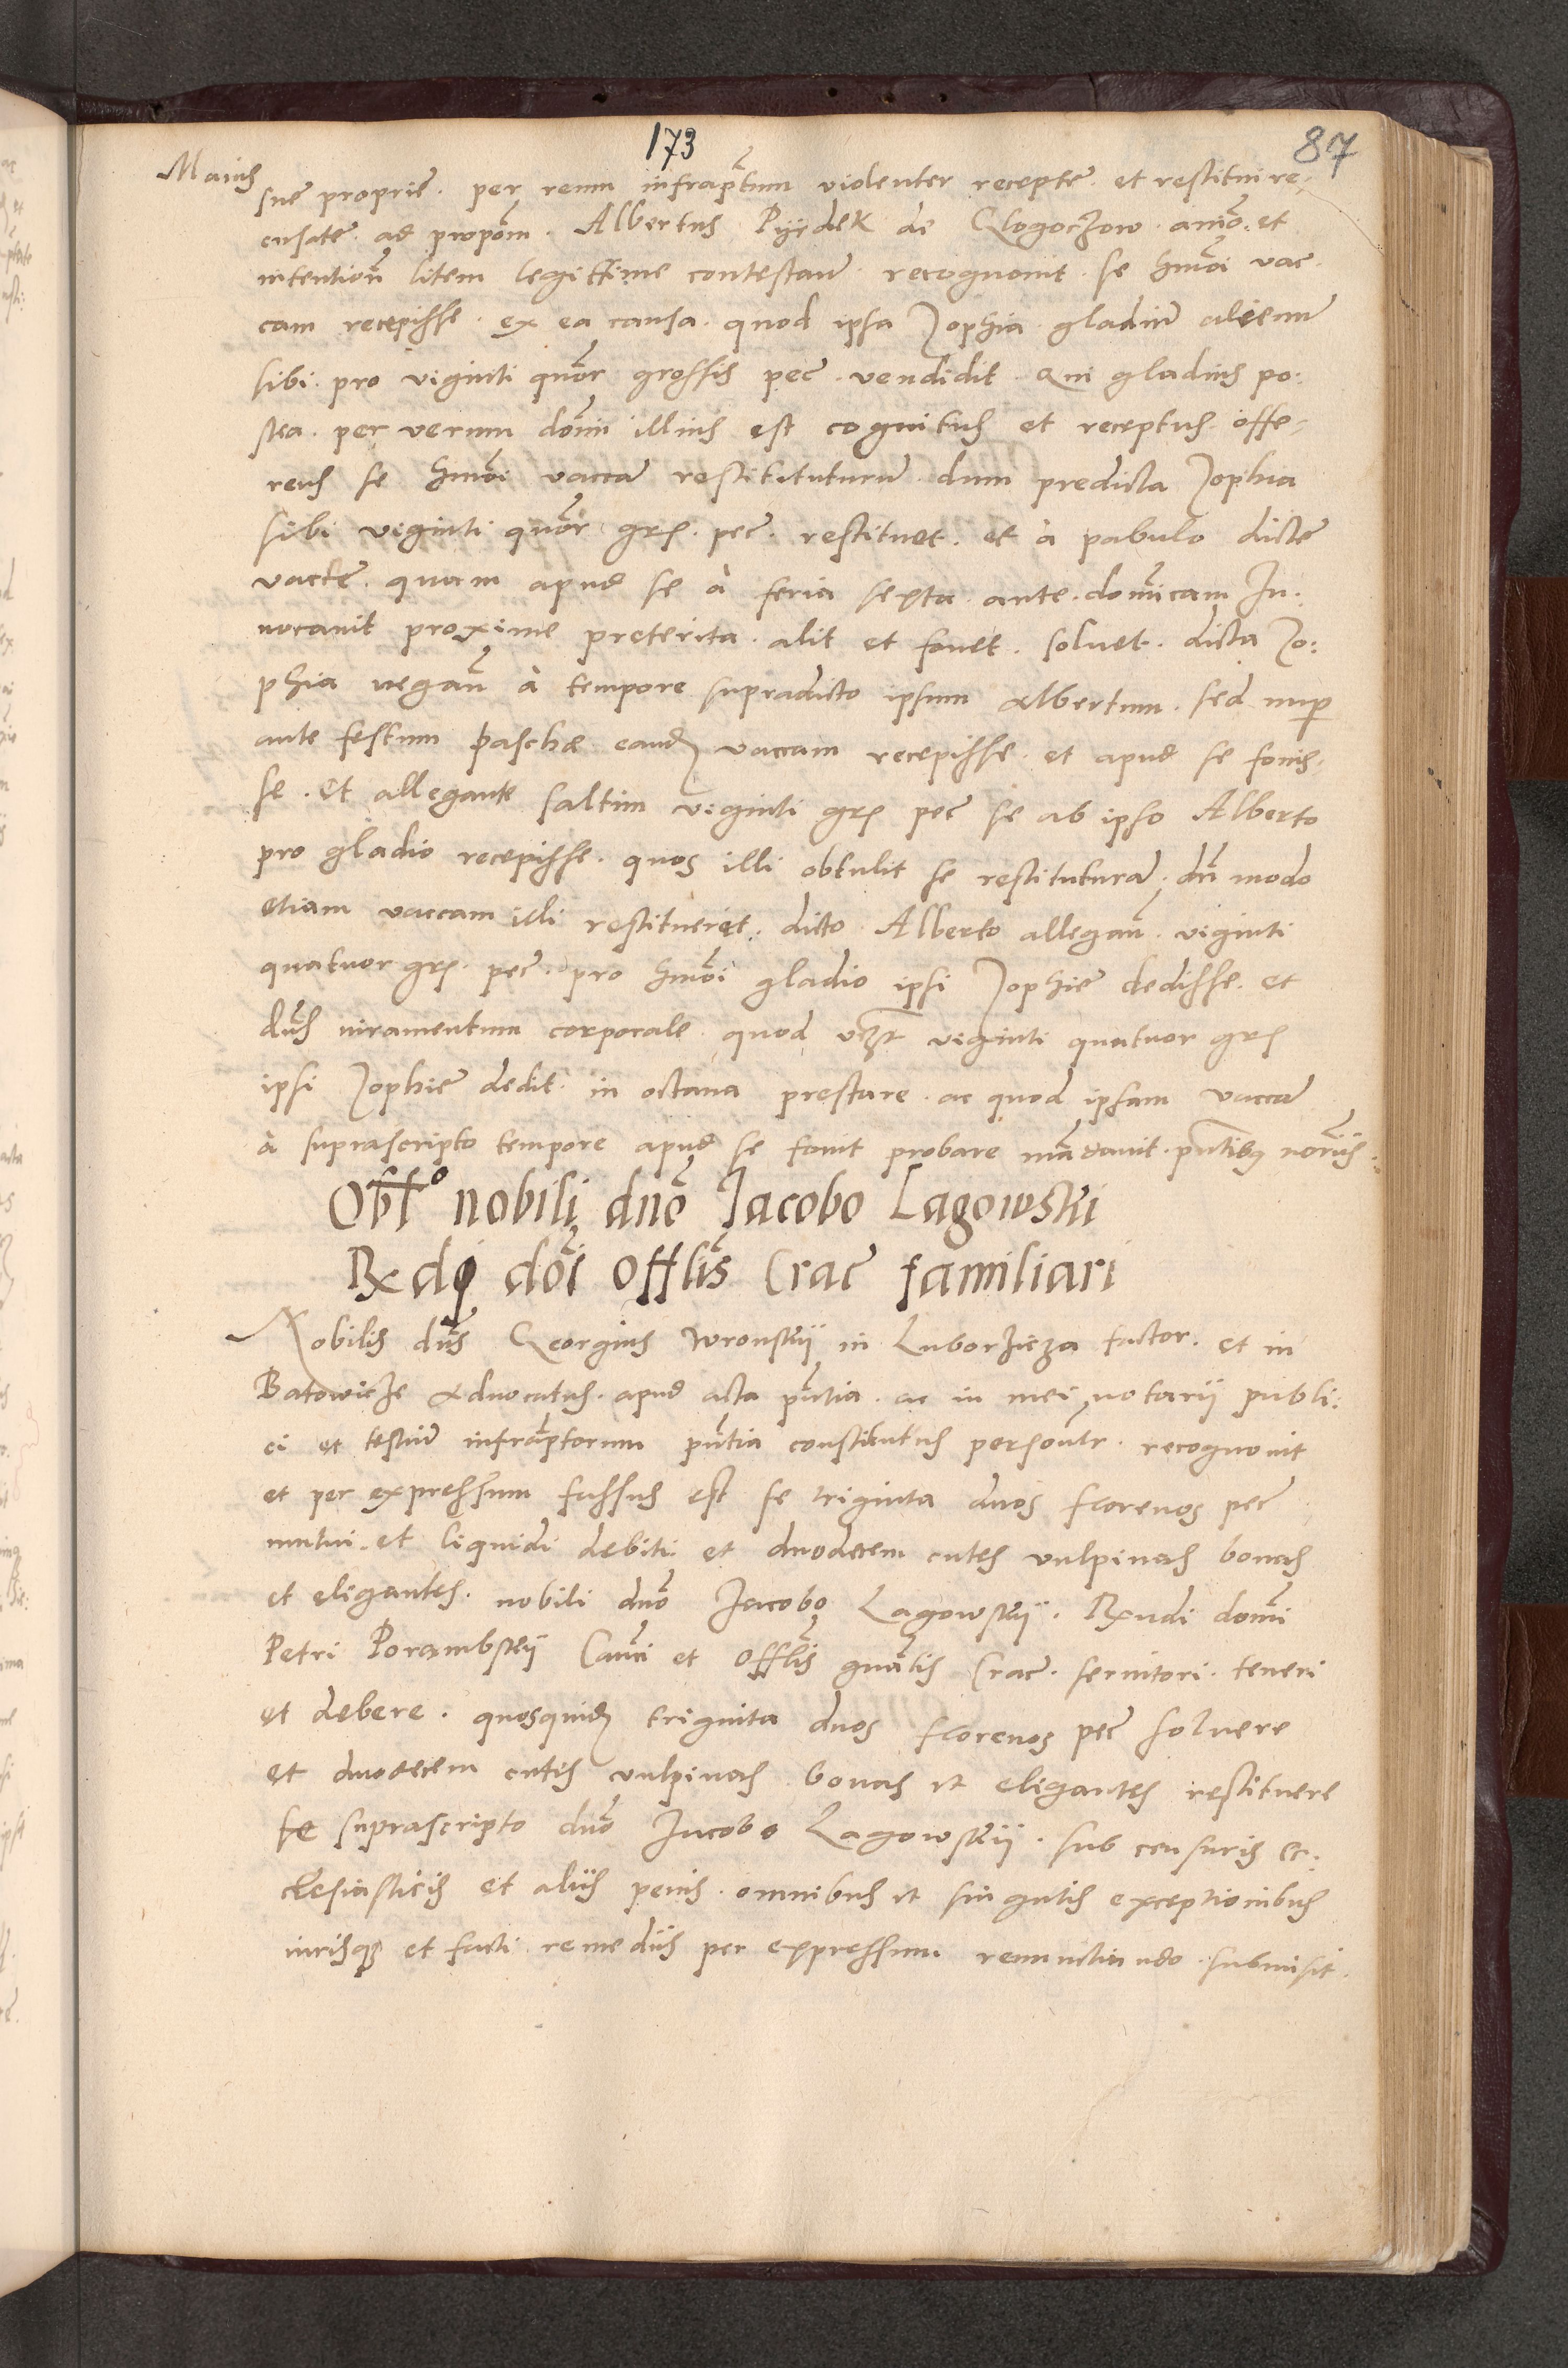 173
87
Maius
sue proprie. per reum infrascriptum violenter recepte. et restitui re-
cusate. ad propõm. Albertus Pyzdek de Glogoczow. animo. et
intentioñ litem legittime contestañ. recognouit. se hmõi vac-
cam recepisse. ex ea causa. quod ipsa Zophia gladiũ alienũ
sibi. pro viginti quõr grossis pec̃. vendidit. Qui gladius po:
stea. per verum doñm illius est cognitus et receptus. offe-
rens se hmõi vaccã restitututurũ. dum predicta Zophia
sibi viginti quõr grs. pec̃. restituet. et à pabulo dicte
vacce. quam apud se à feria sexta ante. dominicam In:
uocauit proxime preterita. alit et fouet. soluet. dicta Zo:
phia negañ à tempore supradicto ipsum Albertum. sed nuper
ante festum paschæ eandem vaccam recepisse. et apud se fouis-
se. Et allegante saltim viginti grs pec̃ se ab ipso Alberto
pro gladio recepisse. quos illi obtulit se restituturã. dũ modo
etiam vaccam illi restitueret. dicto Alberto allegañ. viginti
quatuor grs. pec̃. pro hmõi gladio ipsi Zophie dedisse. et
dñs iuramentum corporale. quod vzt viginti quatuor grs
ipsi Zophie dedit. in octaua prestare. ac quod ipsam vaccã
à suprascripto tempore apud se fouit probare mãdauit. pñtibꝫ notariis.
Oblto nobili dño Jacobo Lagowskÿ
Rxdi doĩ Offlis Crac̃ familiari
Nobilis dñs Georgius Wronskÿ in Luborzicza factor. et in
Batowicze Aduocatus. apud acta pñtia. ac in mei notarii publi:
ci et testiũ infrascriptorum pñtia constitutus personlr. recognouit
et per expressum fassus est se triginta duos florenos pec̃
mutui. et liquidi debiti et duodecem cutes vulpinas bonas
et eligantes. nobili dño Jacobo Lagowskÿ. Rxndi domi
Petri Porambskÿ Cañci et Offlis gñalis Crac̃. seruitori. teneri
et debere. quosquidem triginta duos florenos pec̃ soluere
et duodecem cutes vulpinas bonas et eligantes restituere
se suprascripto dño Jacobo Lagowskÿ. sub censuris ec:
clesiasticis et aliis penis. omnibus et singulis exceptionibus
iurisqꝫ et facti remediis per expressum renunctiando. submisit.